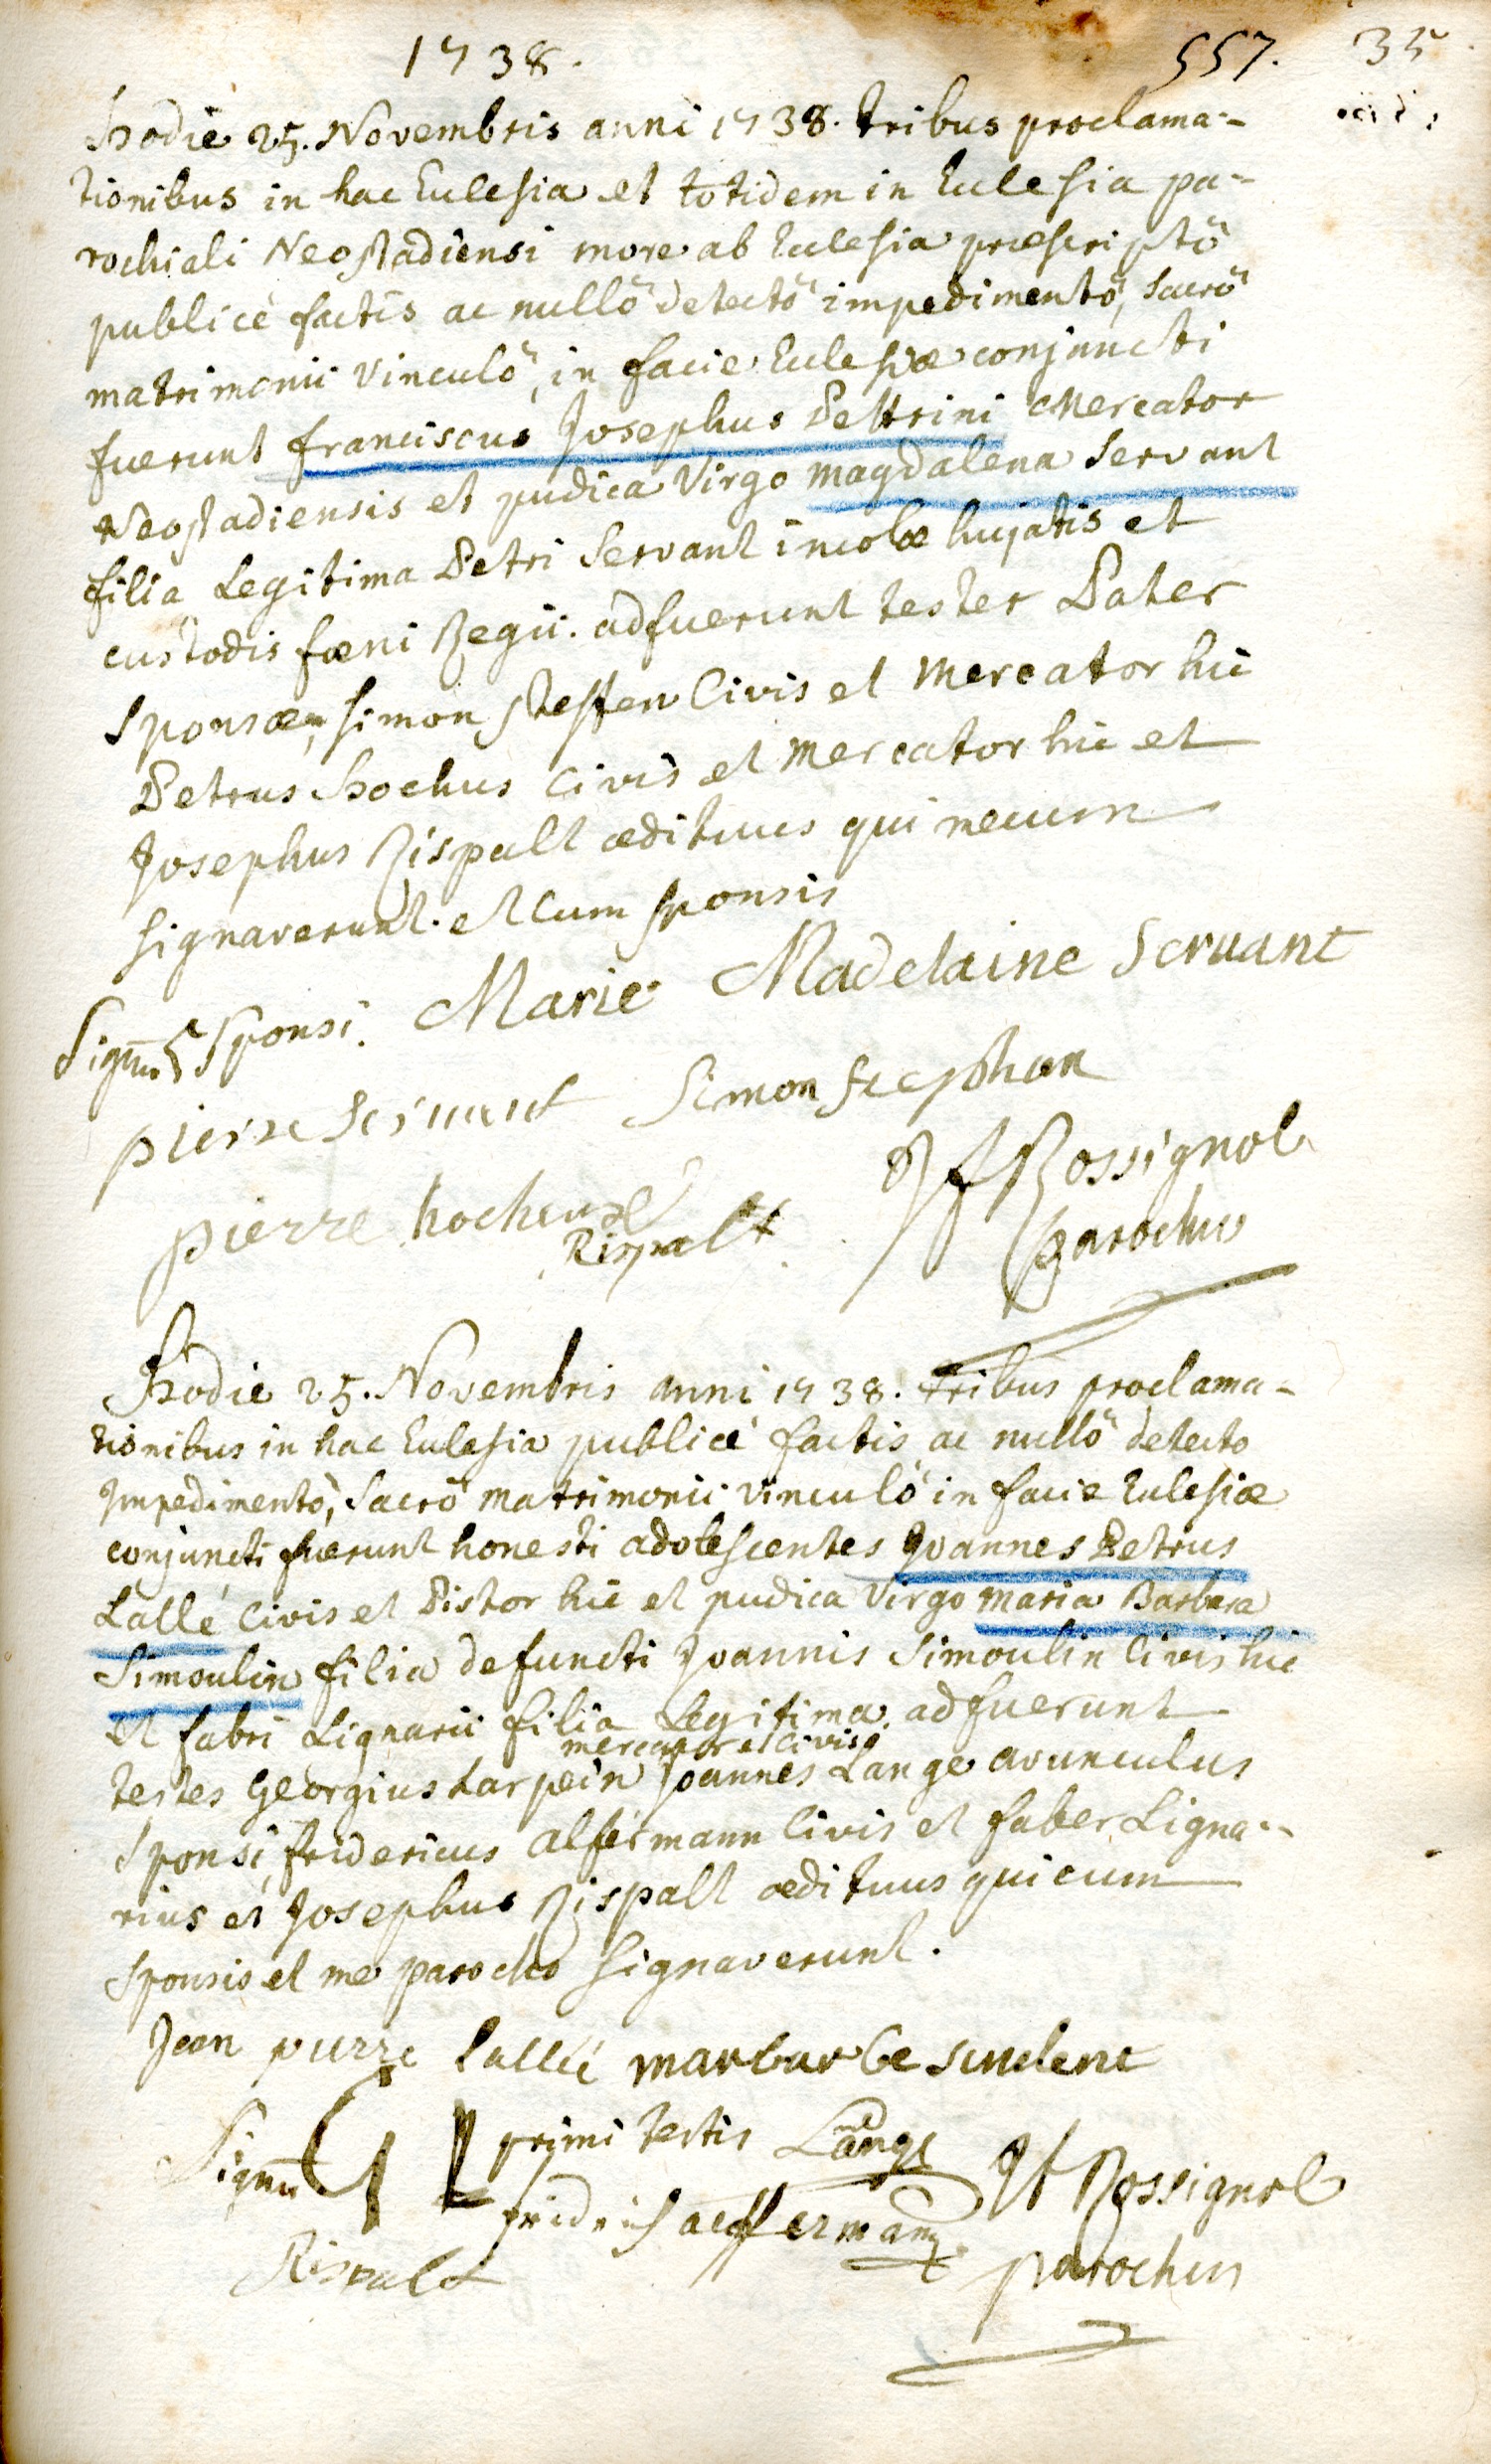 1738. 557. 35
Hodie 25. Novembris anni 1738. tribus proclama-
tionibus in hac Ecclesia et totidem in Ecclesia pa-
rochiali Neostadiensi more ab Ecclesia præscriptô
publicè factis ac nullô detectô impedimentô, Sacrô
matrimonii vinculô, in facie Ecclesiæ conjuncti
fuerunt franciscus Josephus Pellrini Mercator
Neostadiensis et pudica Virgo Magdalena Servant
filia Legitima Petri Servant incolæ hujatis et
custodis fœni Regii. adfuerunt testes Pater
Sponsæ, Simon Steffen Civis et Mercator hic
Petrus Hochus Civis et Mercator hic et
Josephus Rispalt ædituus qui mecum
signaverunt. et Cum sponsis
Signū Sponsi. Marie Madelaine Servant
pierre Servant Simon Stephan
pierre hochus JfRossignol
Rispalt parochus
Hodie 25. Novembris anni 1738. tribus proclama-
tionibus in hac Ecclesia publicè factis ac nullô detecto
Impedimentô, Sacrô Matrimonii vinculô in facie Ecclesiæ
conjuncti fuerunt honesti adolescentes Joannes Petrus
Lallé Civis et Pistor hic et pudica Virgo Maria Barbara
Simoulin filia defuncti Joannis Simoulin Civis hic
et fabri Lignarii filia Legitima. adfuerunt
mercator et Civis
testes Georgius Harpein Joannes Lange avunculus
Sponsi, fridericus Alfermann Civis et faber Ligna-
rius et Josephus Rispalt ædituus qui cum
Sponsis et me parocho signaverunt.
Jean pierre Lallé marbarbe
Signū primi testis Lang Jf Rossignol
fridrich aeffermann
Rispalt parochus